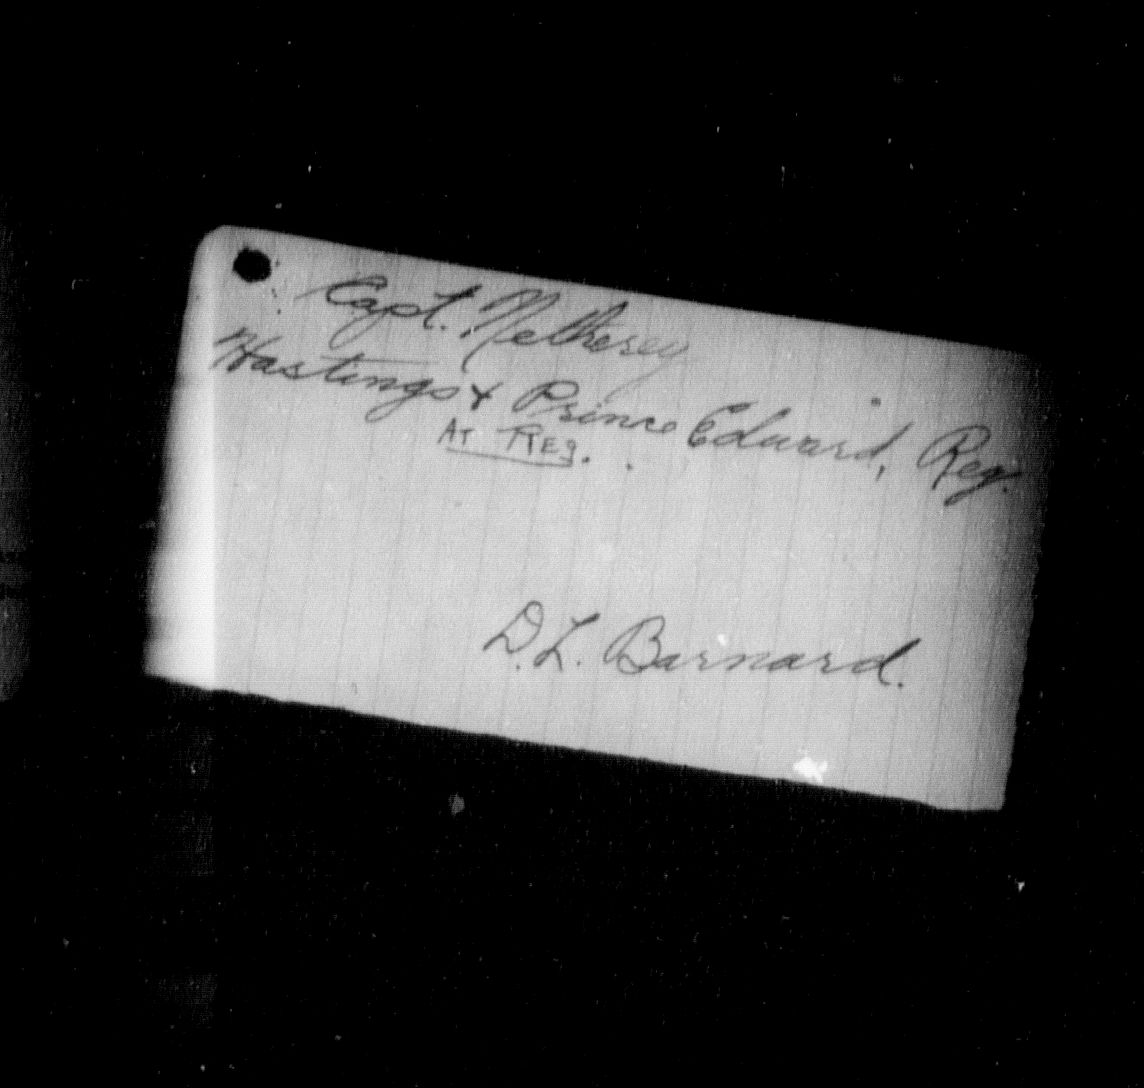 Capt. Nethersey
Hastings & Prince Edward, Reg.
At Reg.
D.L. Barnard.